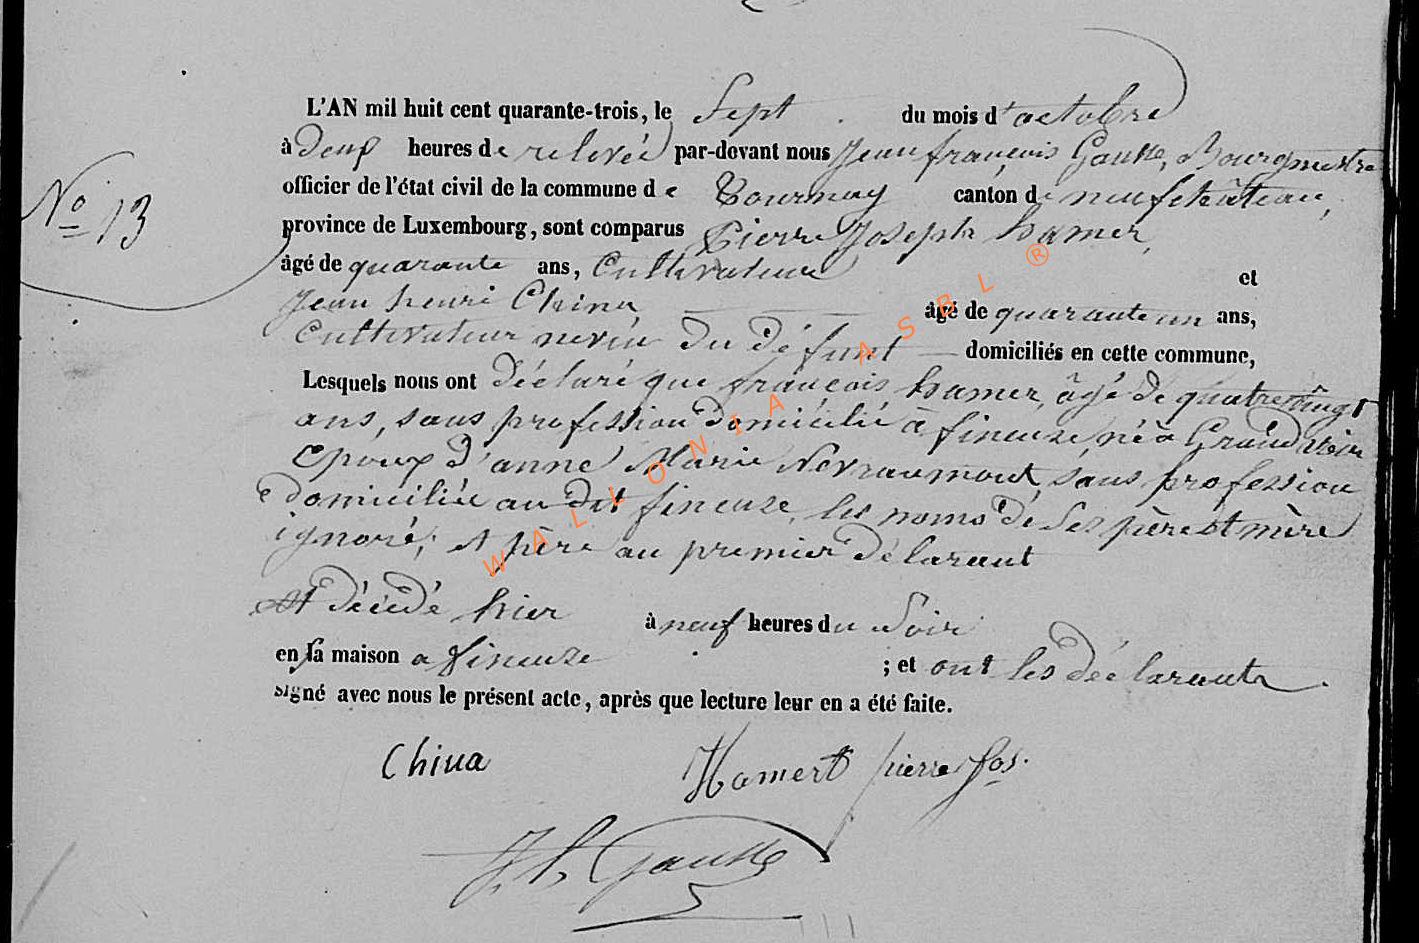 L'AN mil huit cent quarante-trois, le Sept du mois d'octobre
à Deux heures de relevée par-devant nous Jean françois Gausse, Bourgmestre
officier de l'état civil de la commune de Tournay canton de neufchâteau,
N° 13
province de Luxembourg, sont comparus Pierre Joseph hamer,
âgé de quarante ans, Cultivateur et
Jean henri China âgé de quarante un ans,
Cultivateur neveu du défunt domiciliés en cette commune,
Lesquels nous ont déclaré que françois hamer, âgé de quatrevingt
ans, sans profession domicilié à fineuse, né à Grandvoir
Epoux d'anne Marie Nevraumont, sans profession
domiciliée au dit fineuse, les noms de ses père et mère
ignoré, et père au premier délarant
est décédé hier à neuf heures du Soir
en sa maison a fineuze ; et ont les déclarants
signé avec nous le présent acte, après que lecture leur en a été faite.
China Hamert pierre Jos.
J. f. Gausse
WALLONIA ASBL ®